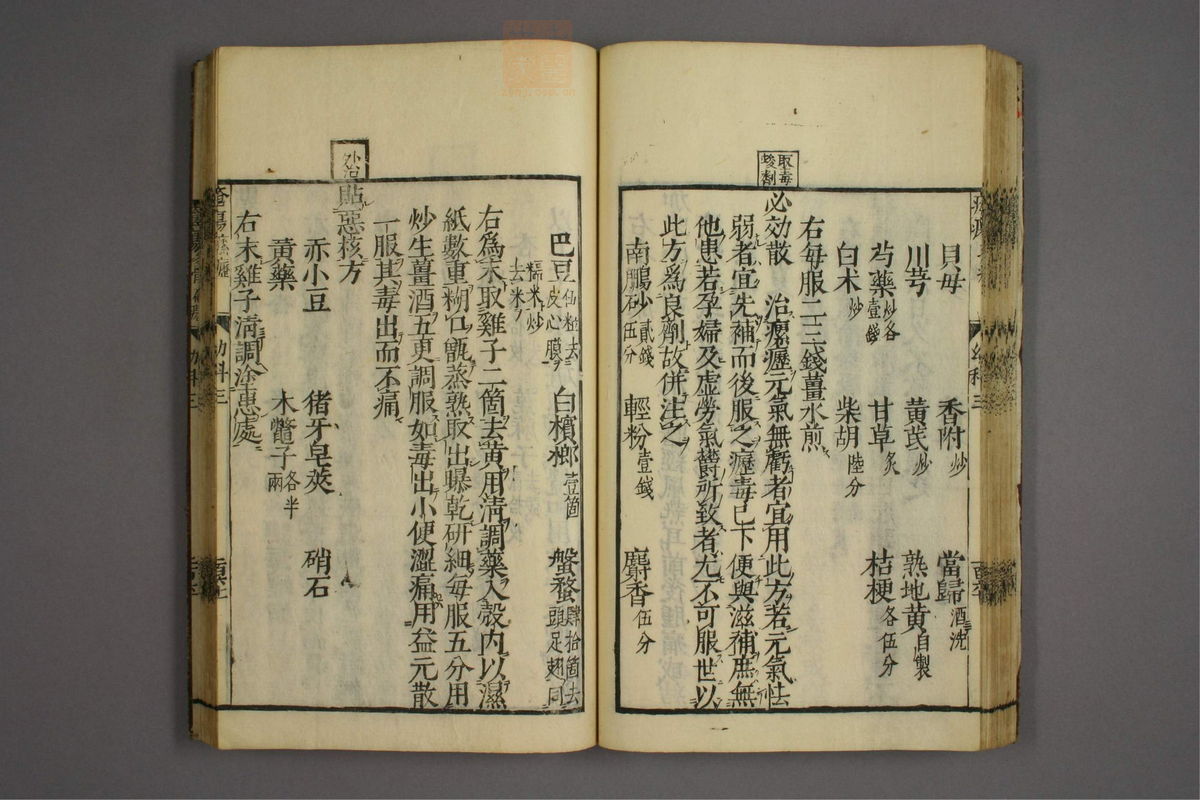 貝母 香附炒 當歸酒洗
川芎 黃芪炒 熟地黃自製
芍藥炒各壹錢 甘草炙 桔梗各伍分
白朮炒 柴胡陸分
右每服二三錢薑水煎
取毒峻劑
必効散 治瘰癧元氣無虧者宜用此方若元氣怯
弱者宜先補而後服之癧毒已下便與滋補庶無
他患若孕婦及虛勞氣鬱所致者尤不可服世以
此方爲良劑故併注之
南鵬砂貳錢伍分 輕粉壹錢 麝香伍分
巴豆去皮心膜 白檳榔壹箇 盤蝥肆拾箇去頭足翅同
糯米炒去米
右爲末取雞子二箇去黃用淸調藥入殼內以濕
紙數重糊口甑蒸熟取出曝乾硏細每服五分用
炒生薑酒五更調服如毒出小便澀痛用益元散
一服其毒出而不痛
外治
貼惡核方
赤小豆 猪牙皂莢 硝石
黃藥 木鼈子各半兩
右末雞子淸調塗患處
幼科三